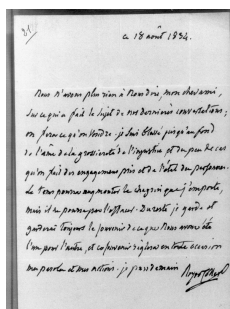 81
ce 18 août 1834.
Nous n'avons plus rien à nous dire, mon cher ami,
sur ce qui a fait le sujet de nos dernières conversations;
on fera ce qu'on voudra. je suis blessé jusqu'au fond
de l'âme de la grossièreté de l'injustice et du peu de cas
qu'on fait des engagements pris et de l'état des personnes.
le tems pourra augmenter le chagrin que j'emporte,
mais il ne pourra pas l'effacer. Du reste je garde et
garderai toujours le souvenir de ce que nous avons été
l'un pour l'autre, et ce souvenir règlera en toute occasion
mes paroles et mes actions. je pars demain